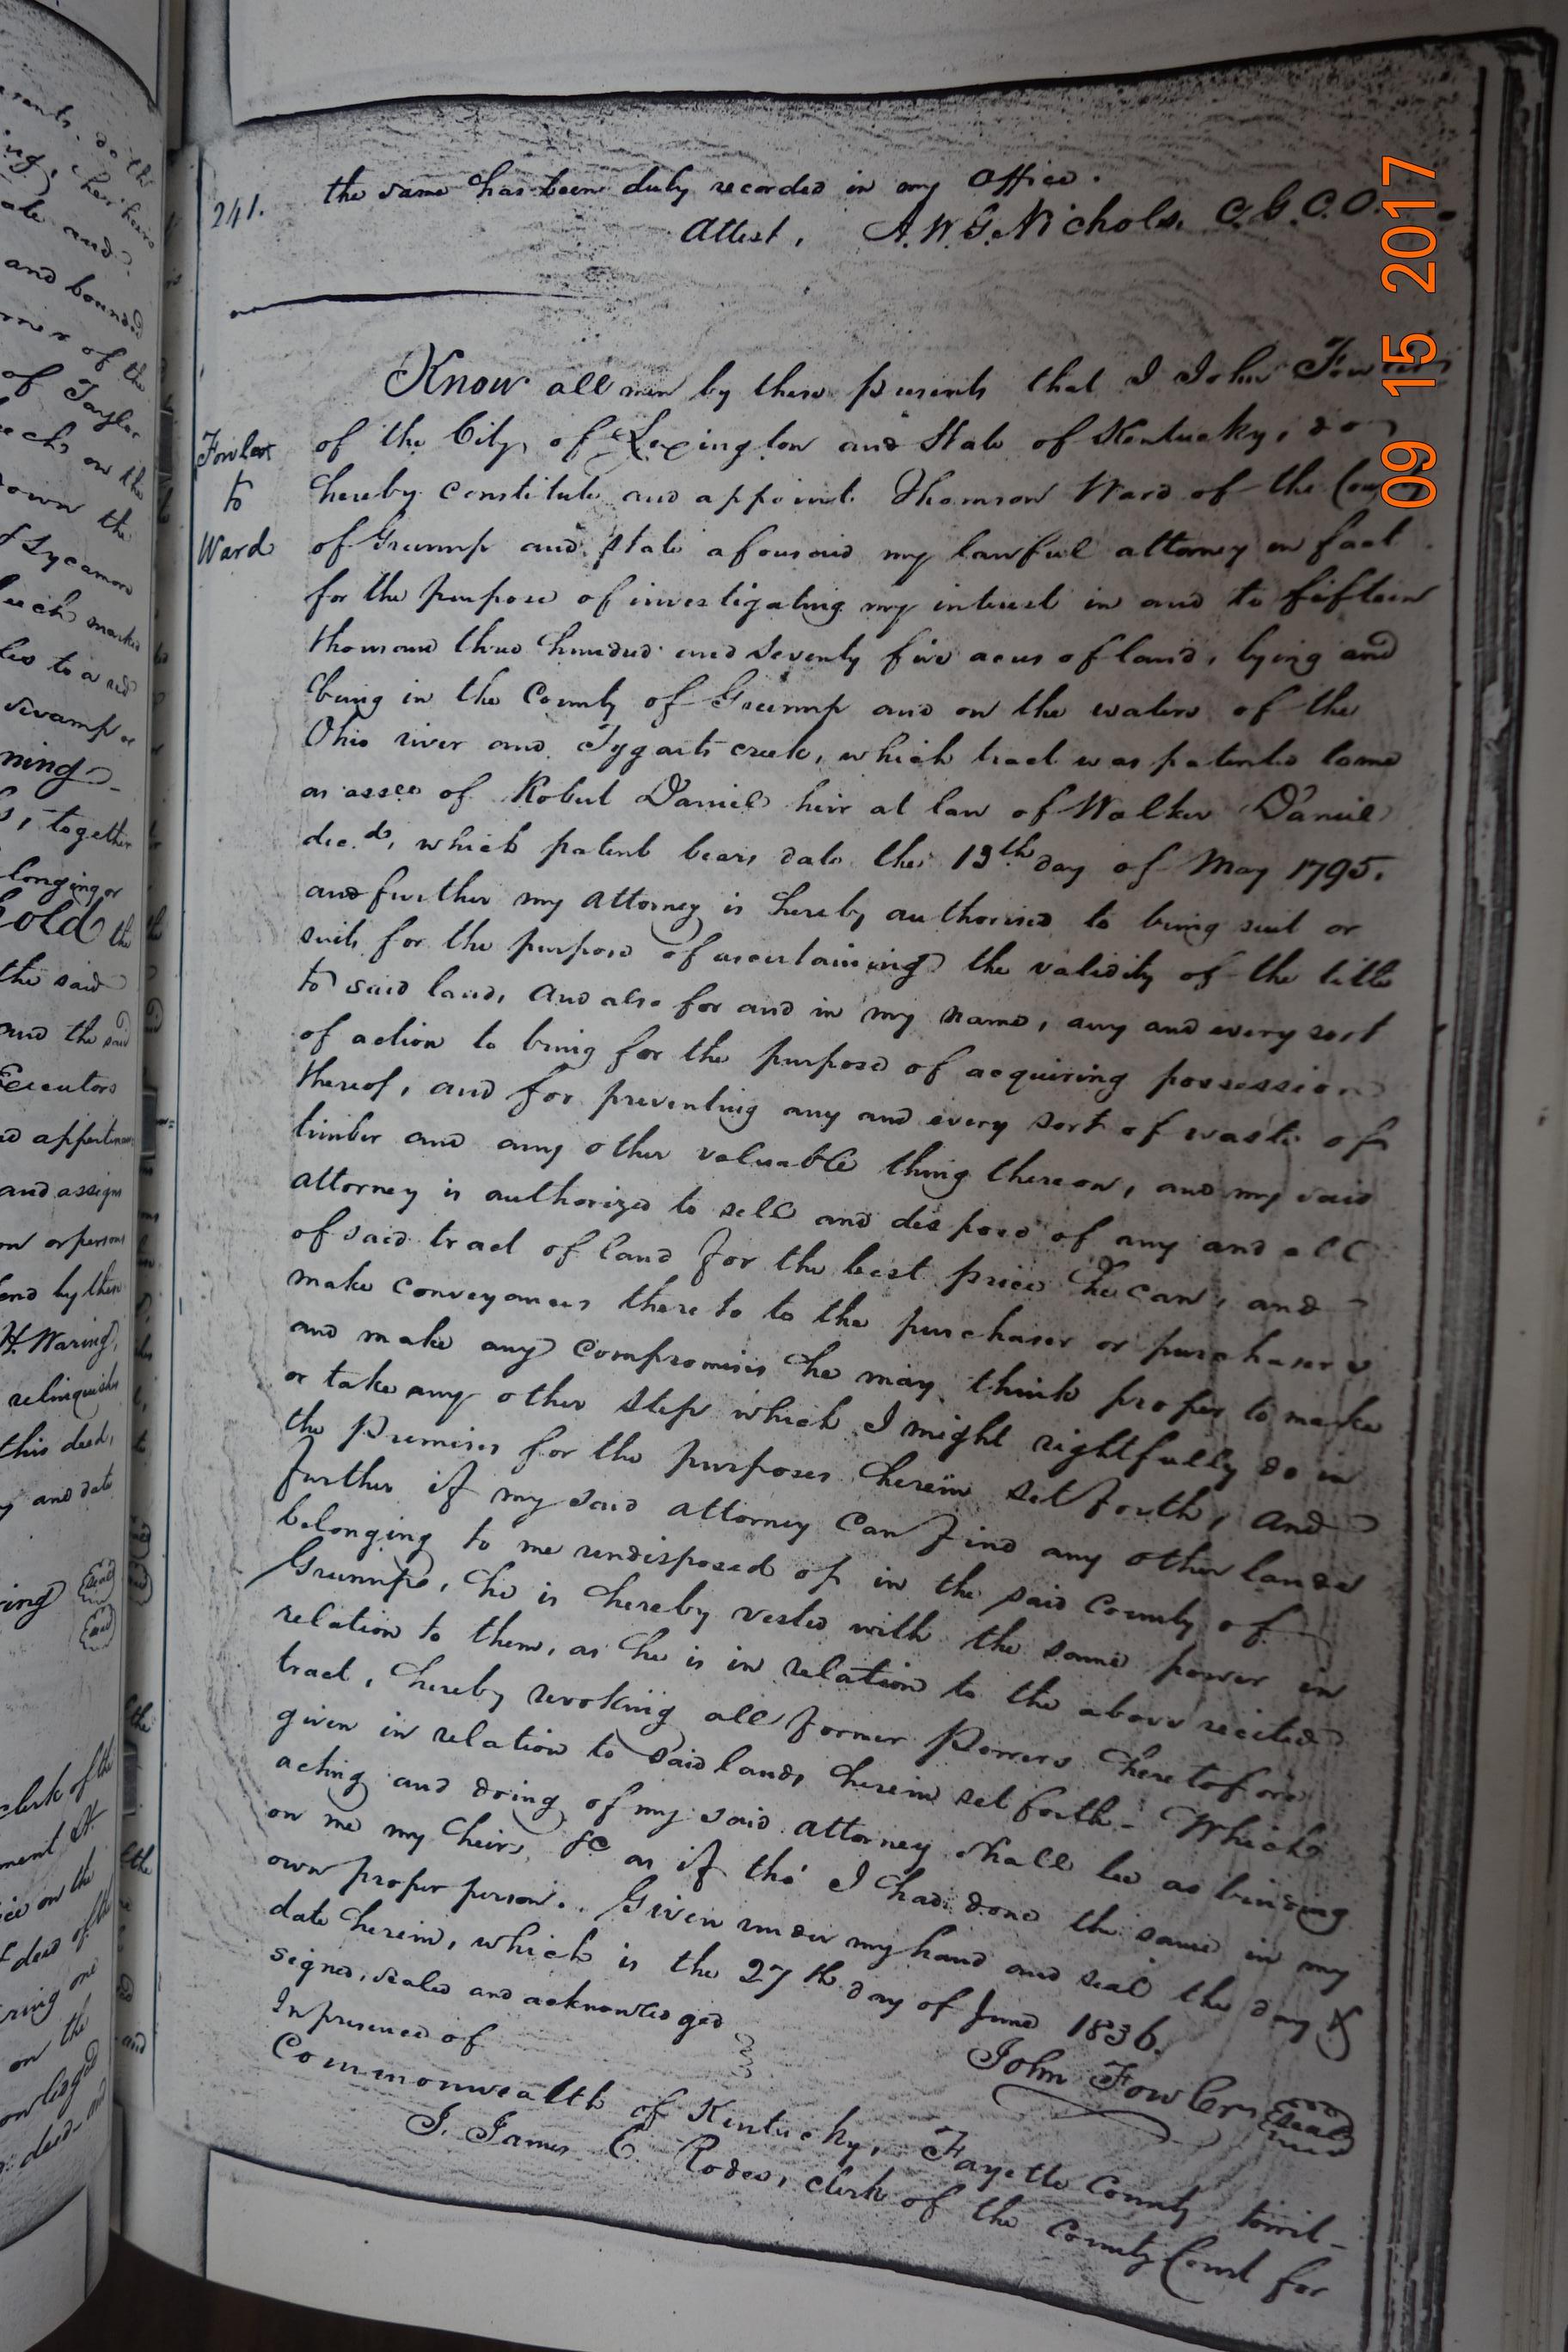 241.
the same has been duly recorded in my Office.
Attest, A. W. G. Nichols, C. G. C. C.
Know all men by these presents that I John Fowler
Fowler
to
Ward
of the City of Lexington and State of Kentucky, do
hereby constitute and appoint Thomson Ward of the County
of Greenup and state aforesaid my lawful attorney in fact
for the purpose of investigating my interest in and to fifteen
thousand three hundred and seventy five acres of land, lying and
being in the County of Greenup and on the waters of the
Ohio river and Tygarts creek, which tract was patented to me
as assee of Robert Daniel heir at law of Walker Daniel
dec.d, which patent bears date the 13th day of May 1795.
and further my attorney is hereby authorised to bring suit or
suits for the purpose of ascertaining the validity of the title
to said land, and also for and in my name, any and every sort
of action to bring for the purpose of acquiring possession
thereof, and for preventing any and every sort of waste of
timber and any other valuable thing thereon, and my said
attorney is authorized to sell and dispose of any and all
of said tract of land for the best price he can, and
make conveyances thereto to the purchaser or purchasers
and make any compromises he may think proper to make
or take any other step which I might rightfully do in
the premises for the purposes herein set forth, and
further if my said attorney can find any other lands
belonging to me undisposed of in the said County of
Greenup, he is hereby vested with the same power in
relation to them, as he is in relation to the above recited
tract, hereby revoking all former Powers heretofore
given in relation to said lands herein set forth - Which
acting and doing of my said attorney shall be as binding
on me my heirs, &c as if tho' I had done the same in my
own proper person. Given under my hand and seal the day &
date herein, which is the 27th day of June 1836.
signed, sealed and acknowledged
In presence of
John Fowler seal
Commonwealth of Kentucky, Fayette County towit-
I. James C. Rodes, clerk of the County Court for
09 15 2017
and bounded
of the
of Taylor
on the
own the
Sycamore
to a red
swamp
together
hold the
the said
and the said
Executors
and assigns
or persons
H. Waring,
relinquish
this deed,
and date
seal
seal
clerk of the
on the
deed of the
on the